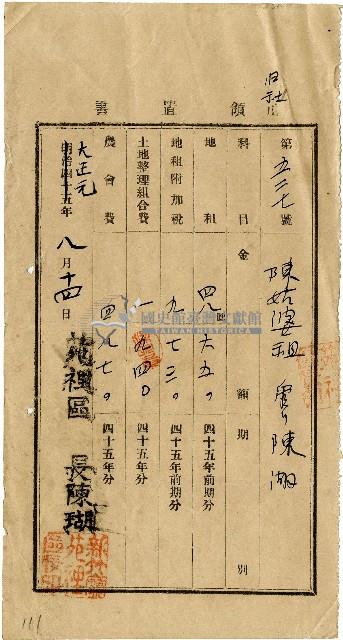 旧社庄
領置書
第五三七號
陳姑婆祖 管 陳湖
科目 金額 期別
地租 四九圓六五〇 四十五年前期分
地租附加稅 九七三〇 四十五年前期分
土地整理組合費 一九四〇 四十五年分
農會費 四九七〇 四十五年分
大正元
明治四十五年八月十四日
苑裡區長陳瑚
國史館臺灣文獻館
111